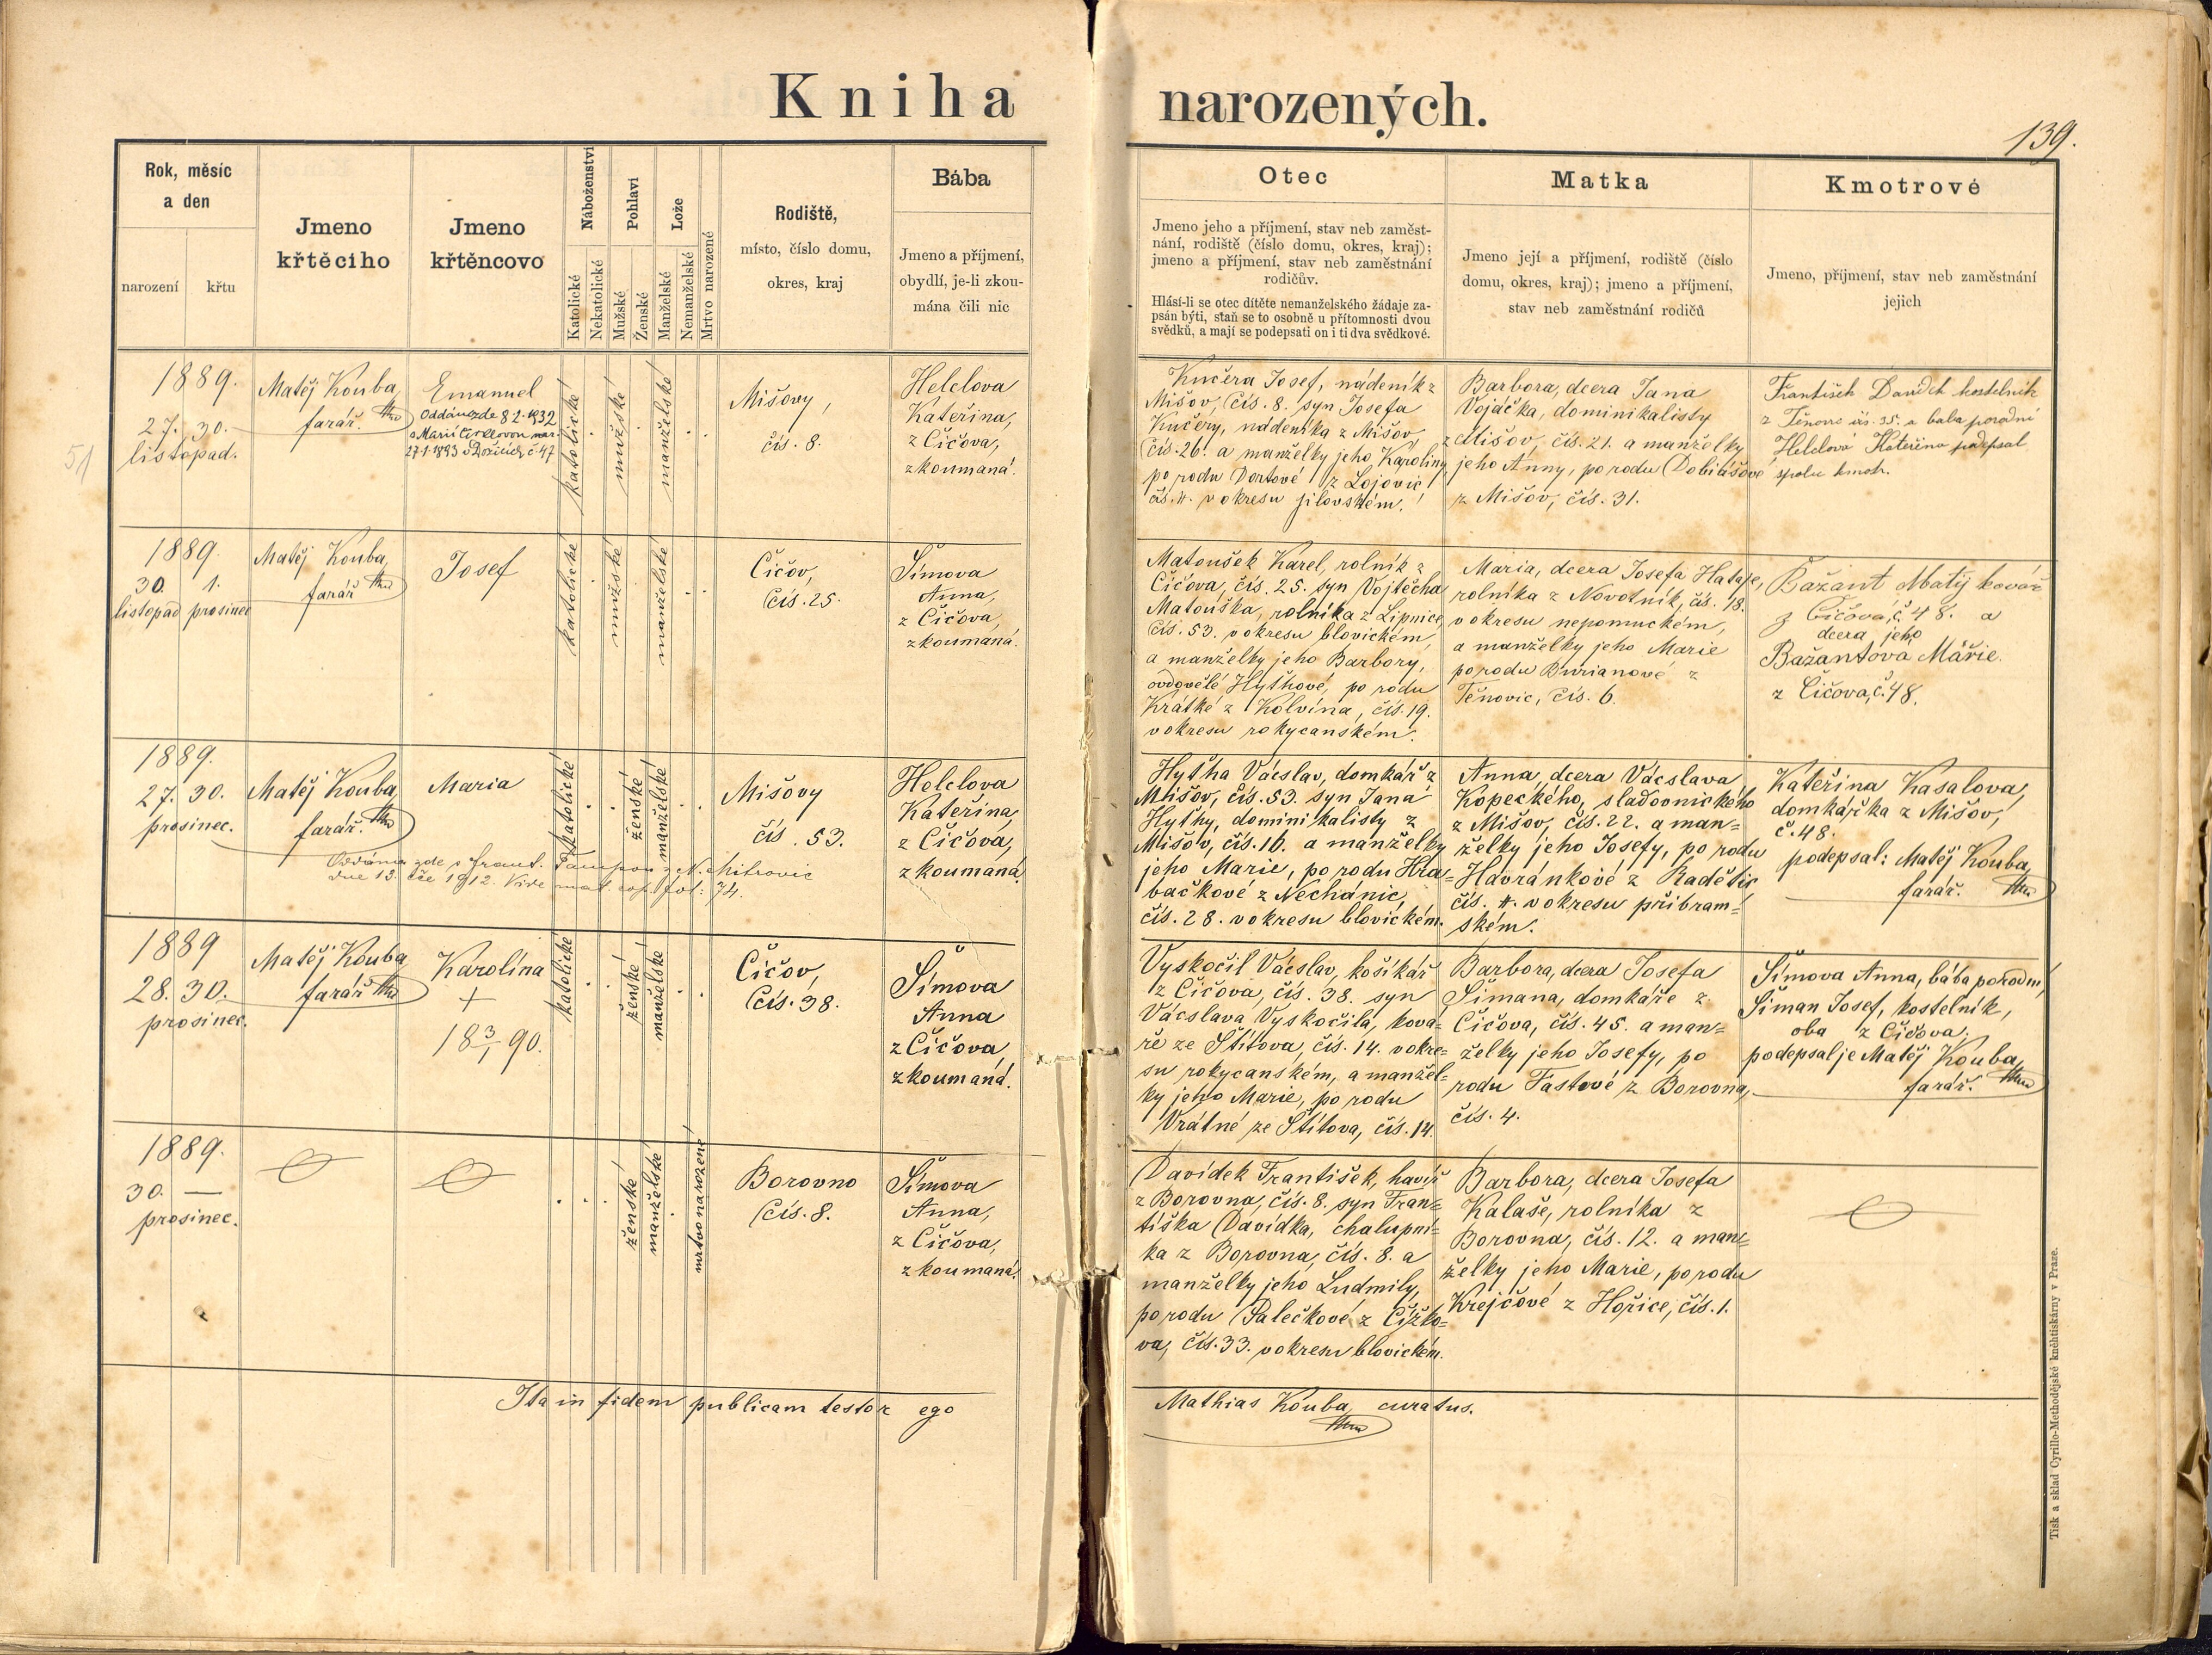 Kniha narozených.
139.
Rok, měsíc
a den
narození
křtu
Jmeno
křtěcího
Jmeno
křtěncovo
Náboženství
Katolické
Nekatolické
Pohlaví
Mužské
Ženské
Lože
Manželské
Nemanželské
Mrtvo narozené
Rodiště,
místo, číslo domu,
okres, kraj
Bába
Jmeno a příjmení,
obydlí, je-li zkou-
mána čili nic
Otec
Jmeno jeho a příjmení, stav neb zaměst-
nání, rodiště (číslo domu, okres, kraj);
jmeno a příjmení, stav neb zaměstnání
rodičův.
Hlásí-li se otec dítěte nemanželského žádaje za-
psán býti, staň se to osobně u přítomnosti dvou
svědků, a mají se podepsati on i ti dva svědkové.
Matka
Jmeno její a příjmení, rodiště (číslo
domu, okres, kraj); jmeno a příjmení,
stav neb zaměstnání rodičů
Kmotrové
Jmeno, příjmení, stav neb zaměstnání
jejich
51
1889.
27. 30.
listopad.
Matěj Kouba,
farář.
Emanuel
Oddán zde 8.2.1932
s Marií
27.1.1893 v č. 47
katolické
mužské
manželské
Mišovy,
čís. 8.
Helclova
Kateřina,
z Čičova,
zkoumaná.
Kučera Josef, nádeník z
Mišov, čís. 8. syn Josefa
Kučery, nádeníka z Mišov,
čís. 26. a manželky jeho Karoliny,
po rodu Dortové z Lojovic
čís. 4. v okresu jílovském.
Barbora, dcera Jana
Vojáčka, dominikalisty
z Mišov, čís. 21. a manželky
jeho Anny, po rodu Dobiášové
z Mišov, čís. 31.
František kostelník
z Těnovic čís. 35. a baba porodní
Helclová Kateřina podepsal
spolu kmotr.
1889.
30. 1.
listopad prosinec
Matěj Kouba,
farář
Josef
katolické
mužské
manželské
Čičov,
čís. 25.
Šímova
Anna,
z Čičova,
zkoumaná.
Matoušek Karel, rolník z
Čičova, čís. 25. syn Vojtěcha
Matouška, rolníka z Lipnice,
čís. 53. v okresu blovickém
a manželky jeho Barbory,
ovdovělé Hyťhové, po rodu
Krátké z Kolvína, čís. 19.
v okresu rokycanském.
Maria, dcera Josefa Hataje,
rolníka z Novotník, čís. 18.
v okresu nepomuckém,
a manželky jeho Marie
po rodu Burianové z
Těnovic, čís. 6.
Bažant Matěj kovář
z Čičova, č. 48. a
dcera jeho
Bažantova Mářie.
z Čičova, č. 48.
1889.
27. 30.
prosinec.
Matěj Kouba,
farář.
Maria
Oddána zde s Frant. z N. Mitrovic
dne 13. 1912. Vide mat. fol. 74.
katolické
ženské
manželské
Mišovy
čís. 53.
Helclova
Kateřina,
z Čičova,
zkoumaná.
Hyťha Václav, domkář z
Mišov, čís. 53. syn Jana
Hyťhy, dominikalisty z
Mišov, čís. 16. a manželky
jeho Marie, po rodu Hra=
bačkové z Nechanic,
čís. 28. v okresu blovickém.
Anna, dcera Václava
Kopeckého, sladovnického
z Mišov, čís. 22. a man=
želky jeho Josefy, po rodu
Havránkové z Radětic
čís. 4. v okresu příbram=
ském.
Kateřina Kasalova,
domkářka z Mišov,
č. 48.
podepsal: Matěj Kouba,
farář.
1889
28. 30.
prosinec.
Matěj Kouba
farář
Karolína
+
18 3/1 90.
katolické
ženské
manželské
Čičov,
čís. 38.
Šímova
Anna
z Čičova,
zkoumaná.
Vyskočil Václav, košíkář
z Čičova, čís. 38. syn
Václava Vyskočila, ková=
ře ze Štítova, čís. 14. v okre=
su rokycanském, a manžel=
ky jeho Marie, po rodu
Vrátné ze Štítova, čís. 14.
Barbora, dcera Josefa
Šimana, domkáře z
Čičova, čís. 45. a man=
želky jeho Josefy, po
rodu Tastové z Borovna,
čís. 4.
Šímova Anna, bába porodní,
Šiman Josef, kostelník,
oba z Čičova.
podepsal je Matěj Kouba,
farář.
1889.
30. —
prosinec.
ženské
manželské
mrtvo narozené
Borovno
čís. 8.
Šímova
Anna,
z Čičova,
zkoumaná.
Davídek František, havíř
z Borovna, čís. 8. syn Fran=
tiška Davídka, chalupní=
ka z Borovna, čís. 8. a
manželky jeho Ludmily,
po rodu Palečkové z Čížko=
va, čís. 33. v okresu blovickém.
Barbora, dcera Josefa
Kalaše, rolníka z
Borovna, čís. 12. a man=
želky jeho Marie, po rodu
Krejčové z Hořice, čís. 1.
Ita in fidem publicam testor ego Mathias Kouba, curatus.
Tisk a sklad Cyrillo-Methodějské kněhtiskárny v Praze.